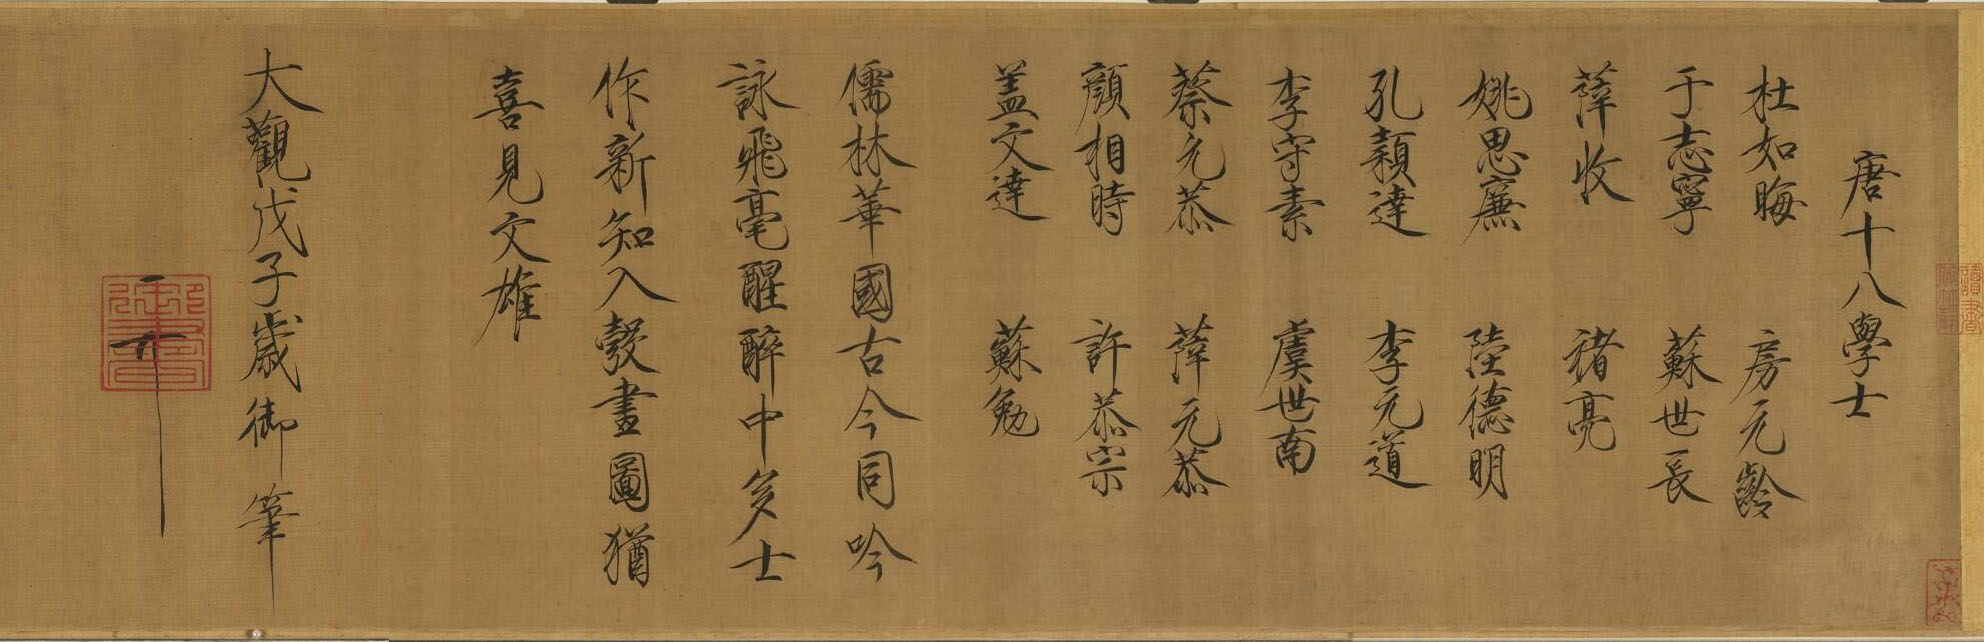 唐十八學士
杜如晦 房元齡
于志寧 蘇世長
薛收 褚亮
姚思廉 陸德明
孔穎達 李元道
李守素 虞世南
蔡元恭 薛元恭
顏相時 許恭宗
盖文達 蘇勉
儒林華國古今同吟
詠飛毫醒醉中多士
作新知入彀畫圖猶
喜見文雄
大觀戊子歲御筆
御書